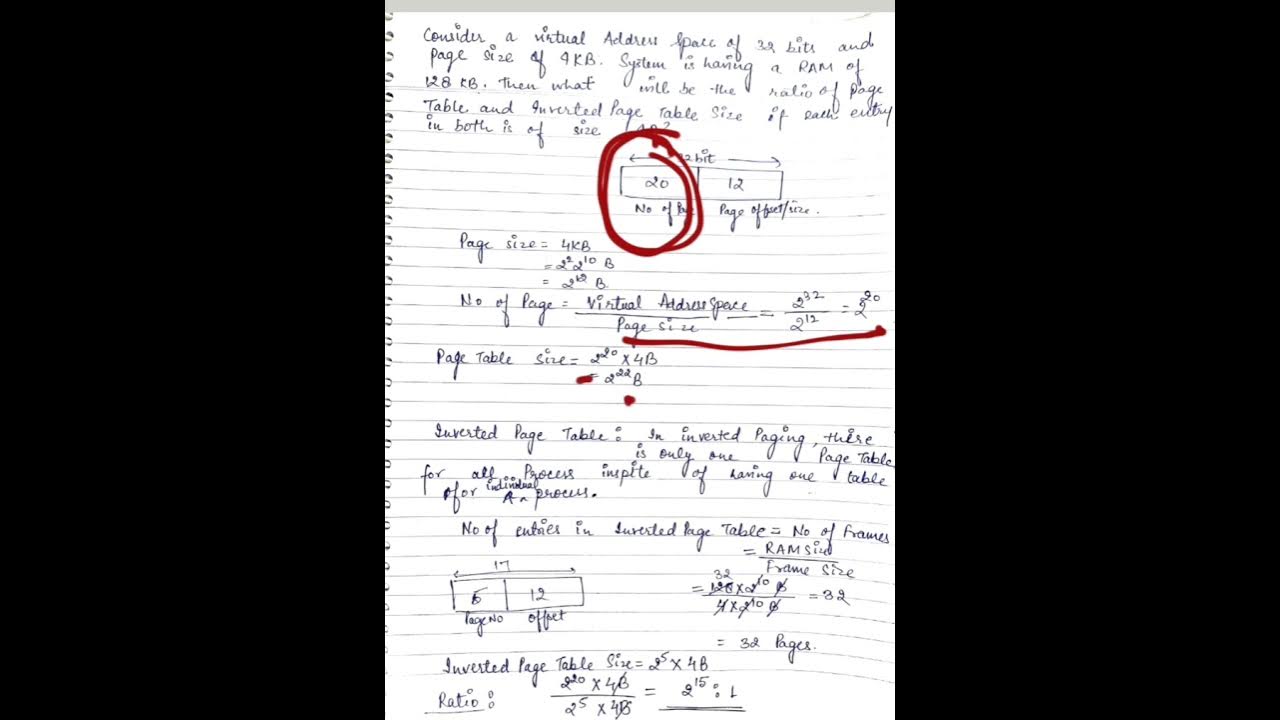 Consider a virtual Address Space of 32 bits and
Page size of 4KB. System is having a RAM of
128 KB. Then what will be the ratio of Page
Table and Inverted Page Table Size if each entry
in both is of size
32 bit
20 12
No of Page Page offset/size.
Page size = 4KB
= 2² 2¹⁰ B
= 2¹² B
No of Page = Virtual Address Space / Page size = 2³² / 2¹² = 2²⁰
Page Table size = 2²⁰ × 4B
= 2²² B
Inverted Page Table : In inverted Paging, there
is only one Page Table
for all Process inspite of having one table
for individual process.
No of entries in Inverted Page Table = No of Frames
= RAM Size / Frame size
17
5 12
Page No offset
32
= 128 × 2¹⁰ B / 4 × 2¹⁰ B = 32
= 32 Pages.
Inverted Page Table Size = 2⁵ × 4B
Ratio : 2²⁰ × 4B / 2⁵ × 4B = 2¹⁵ : 1